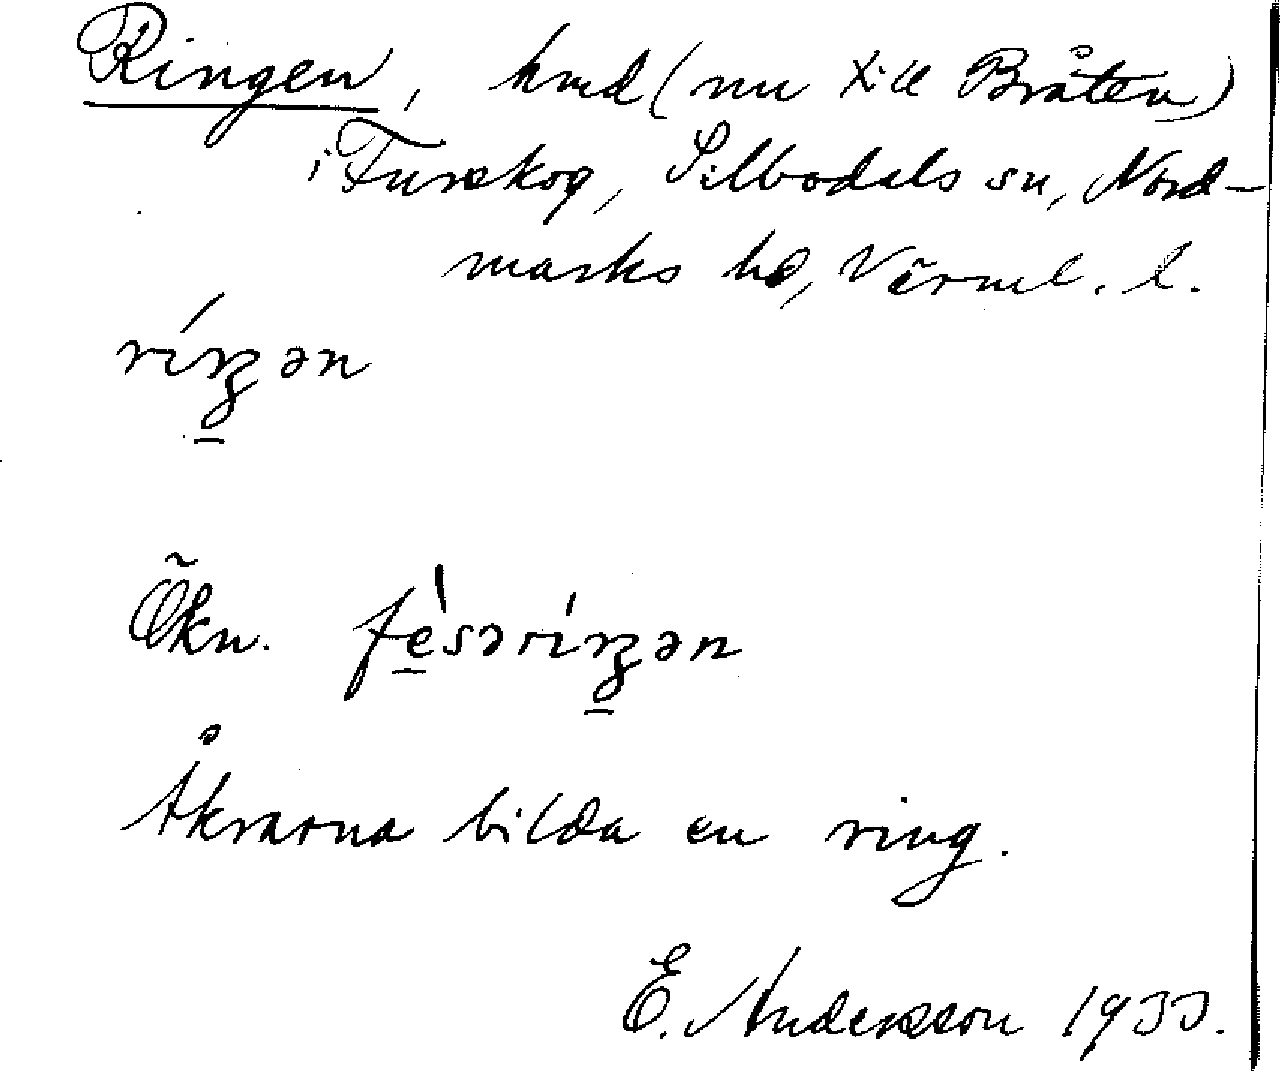 Ringen, hmd (nu till Bråten)
i Furskog, Silbodals sn, Nord-
marks hd, Värml. l.
ríŋən
Ökn. fèsəríŋən
Åkrarna bilda en ring.
E. Andersson 1933.